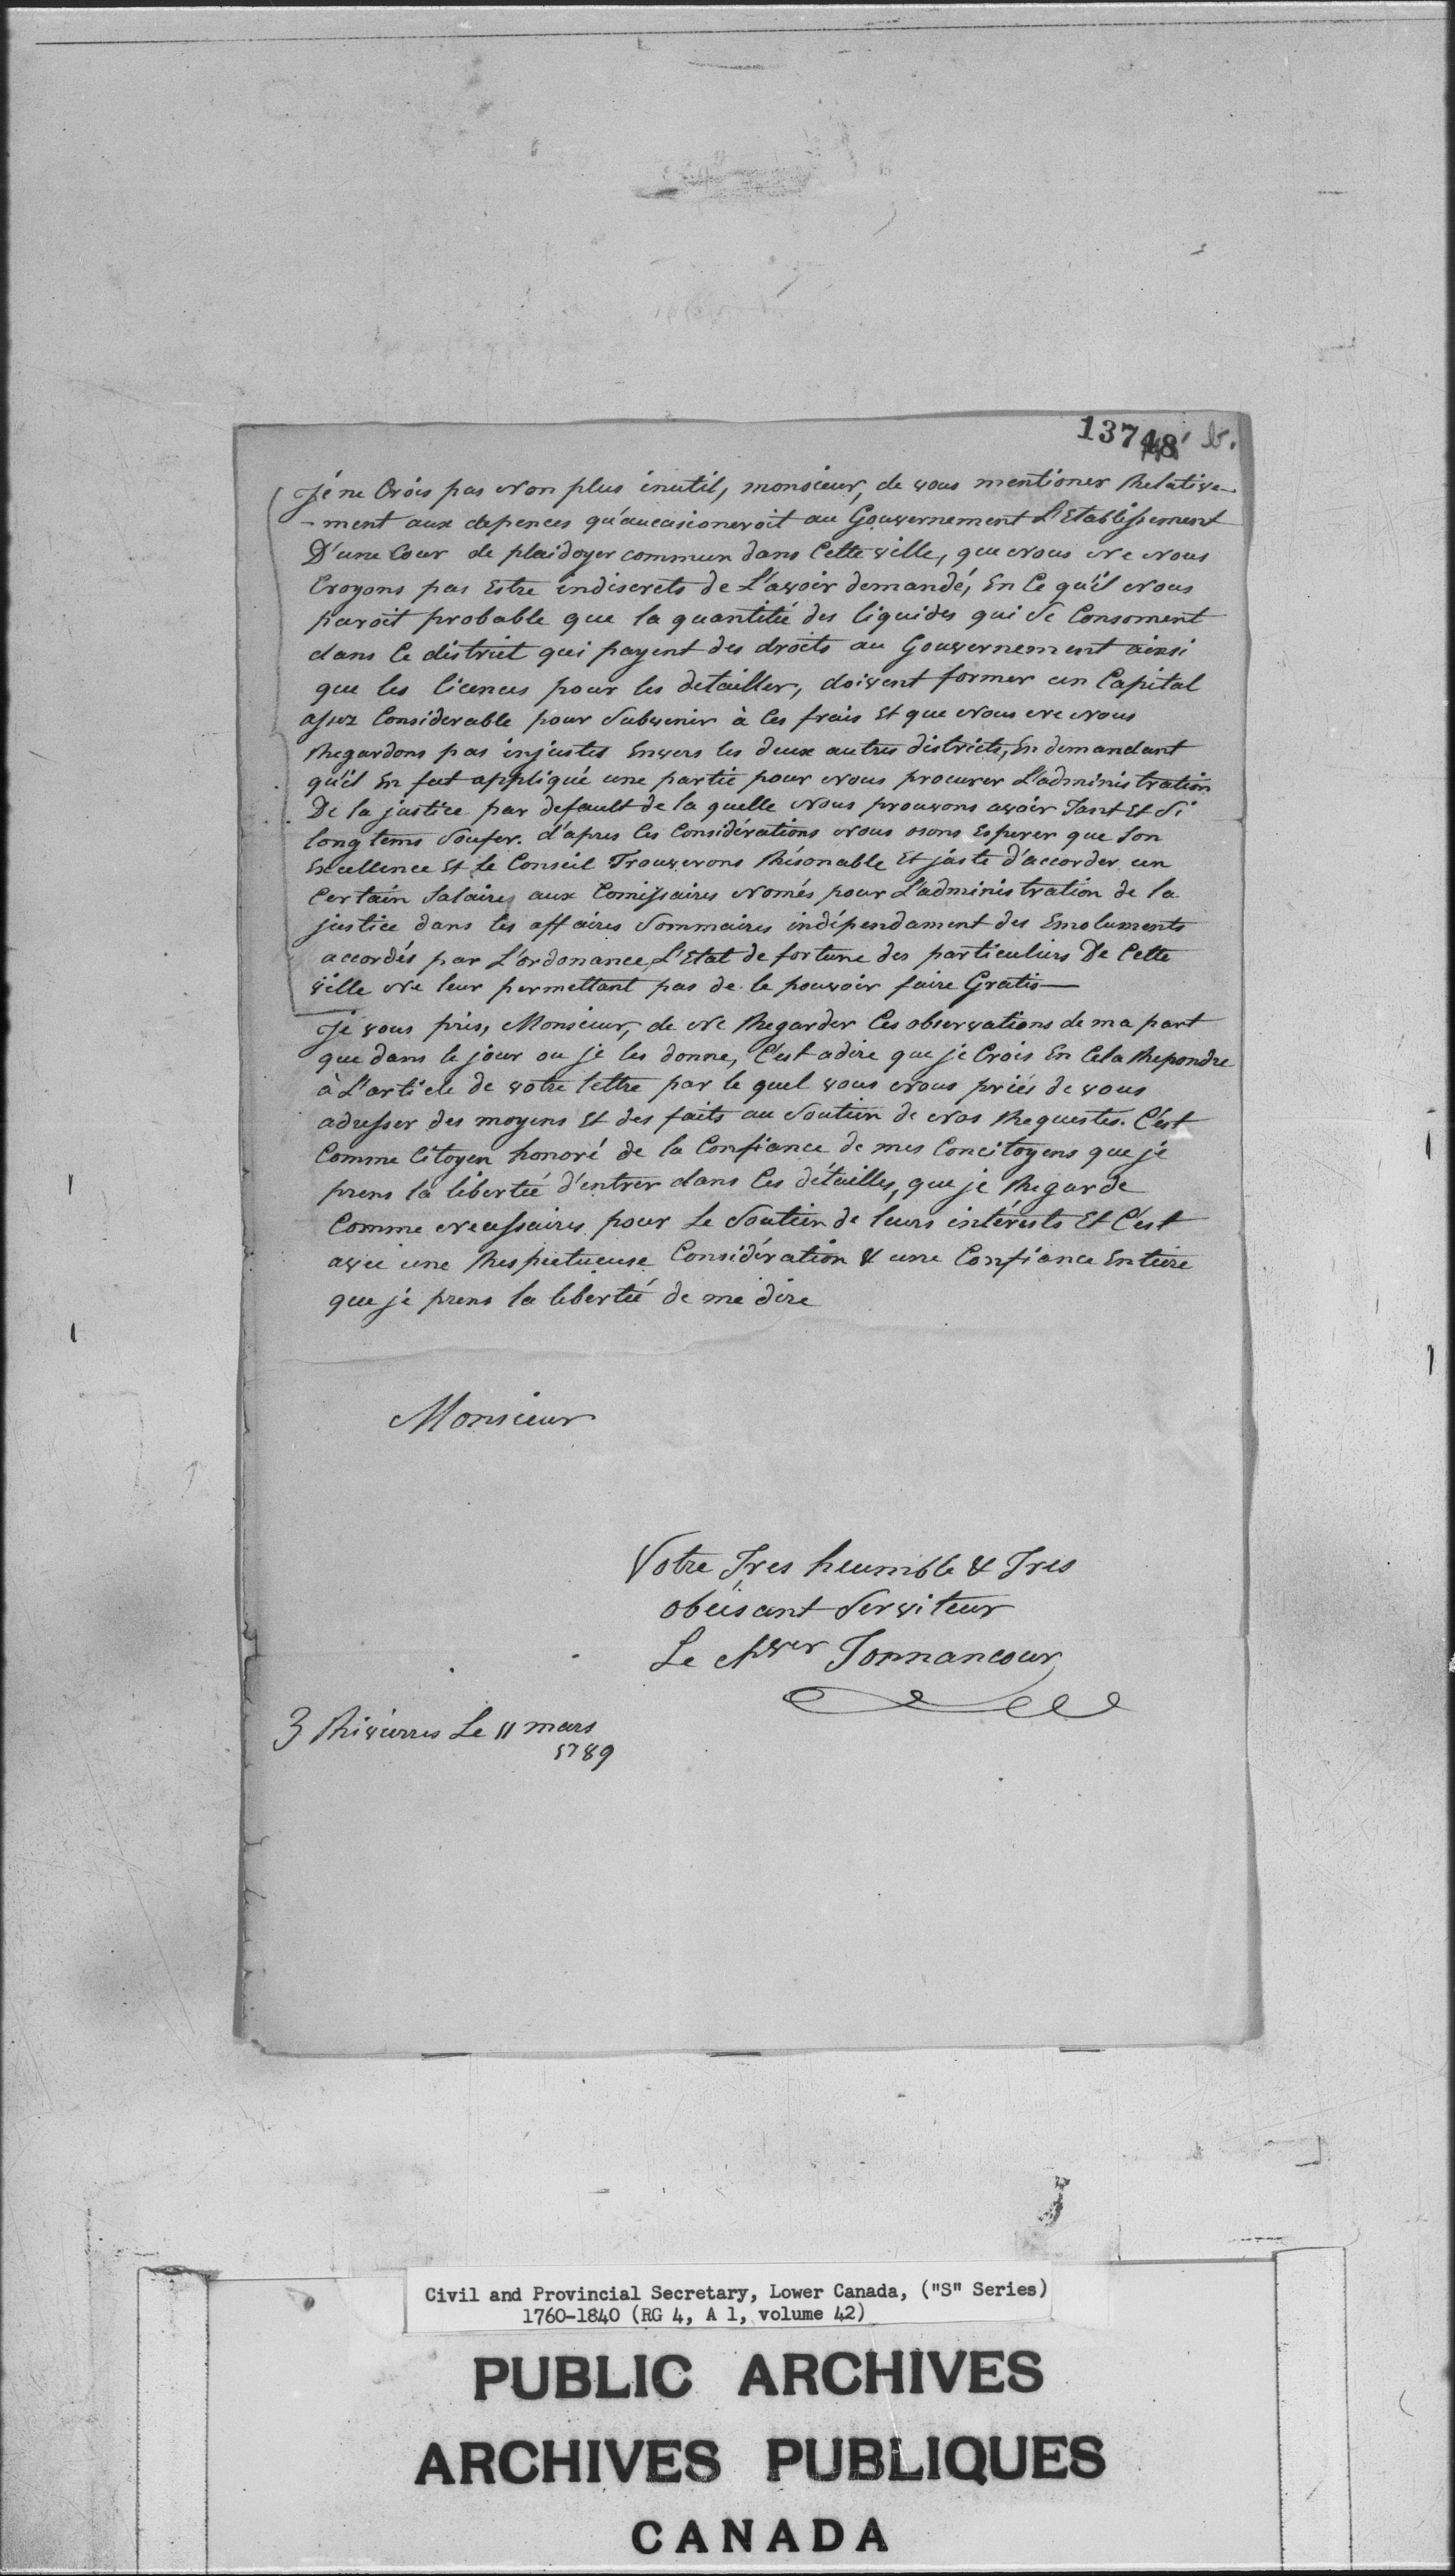 13748 b.
Je ne Crois pas non plus inutil, monsieur, de vous mentioner Relative-
-ment aux depences qu'aucasioneroit au Gouvernement L'Etablissement
D'une Cour de plaidoyer commun dans Cette ville, que nous ne nous
Croyons pas Estre indiscrets de L'avoir demandé, En Ce qu'il nous
paroit probable que la quantitée des liquides qui se Consoment
dans Ce district qui payent des droits au Gouvernement ainsi
que les licences pour les detailler, doivent former un Capital
assez Considerable pour Subvenir à Ces frais Et que nous ne nous
Regardons pas injustes Envers les deux autres districts, En demandant
qu'il En fut appliqué une partie pour nous procurer L'administration
De la justice par default de la quelle nous prouvons avoir Tant Et Si
long tems Soufer. d'apres Ces Considérations nous osons Esperer que Son
Excellence Et Le Conseil Trouverons Résonable Et juste d'accorder un
Certain Salaires aux Comissaires només pour L'administration de la
justice dans les affaires Sommaires indépendament des Emoluments
accordés par L'ordonance, L'Etat de fortune des particuliers De Cette
ville ne leur permettant pas de le pouvoir faire Gratis—
Je vous pris, Monsieur, de ne Regarder Ces observations de ma part
que dans le jour ou je les donne, C'est adire que je Crois En Cela Repondre
à L'article de votre lettre par le quel vous nous priés de vous
adresser des moyens Et des faits au Soutien de nos Requestes. C'est
Comme Citoyen honoré de la Confiance de mes Concitoyens que je
prens la libertée d'entrer dans Ces détailles, que je Regarde
Comme necessaires pour Le Soutien de leurs intérests Et C'est
avec une Respectueuse Considération & une Confiance Entiere
que je prens la libertée de me dire
Monsieur
Votre Tres heumble & Tres
obeisant Serviteur
Le Chver Tonnancour
3 Rivierres Le 11 mars
1789
Civil and Provincial Secretary, Lower Canada, ("S" Series)
1760-1840 (RG 4, A 1, volume 42)
PUBLIC ARCHIVES
ARCHIVES PUBLIQUES
CANADA